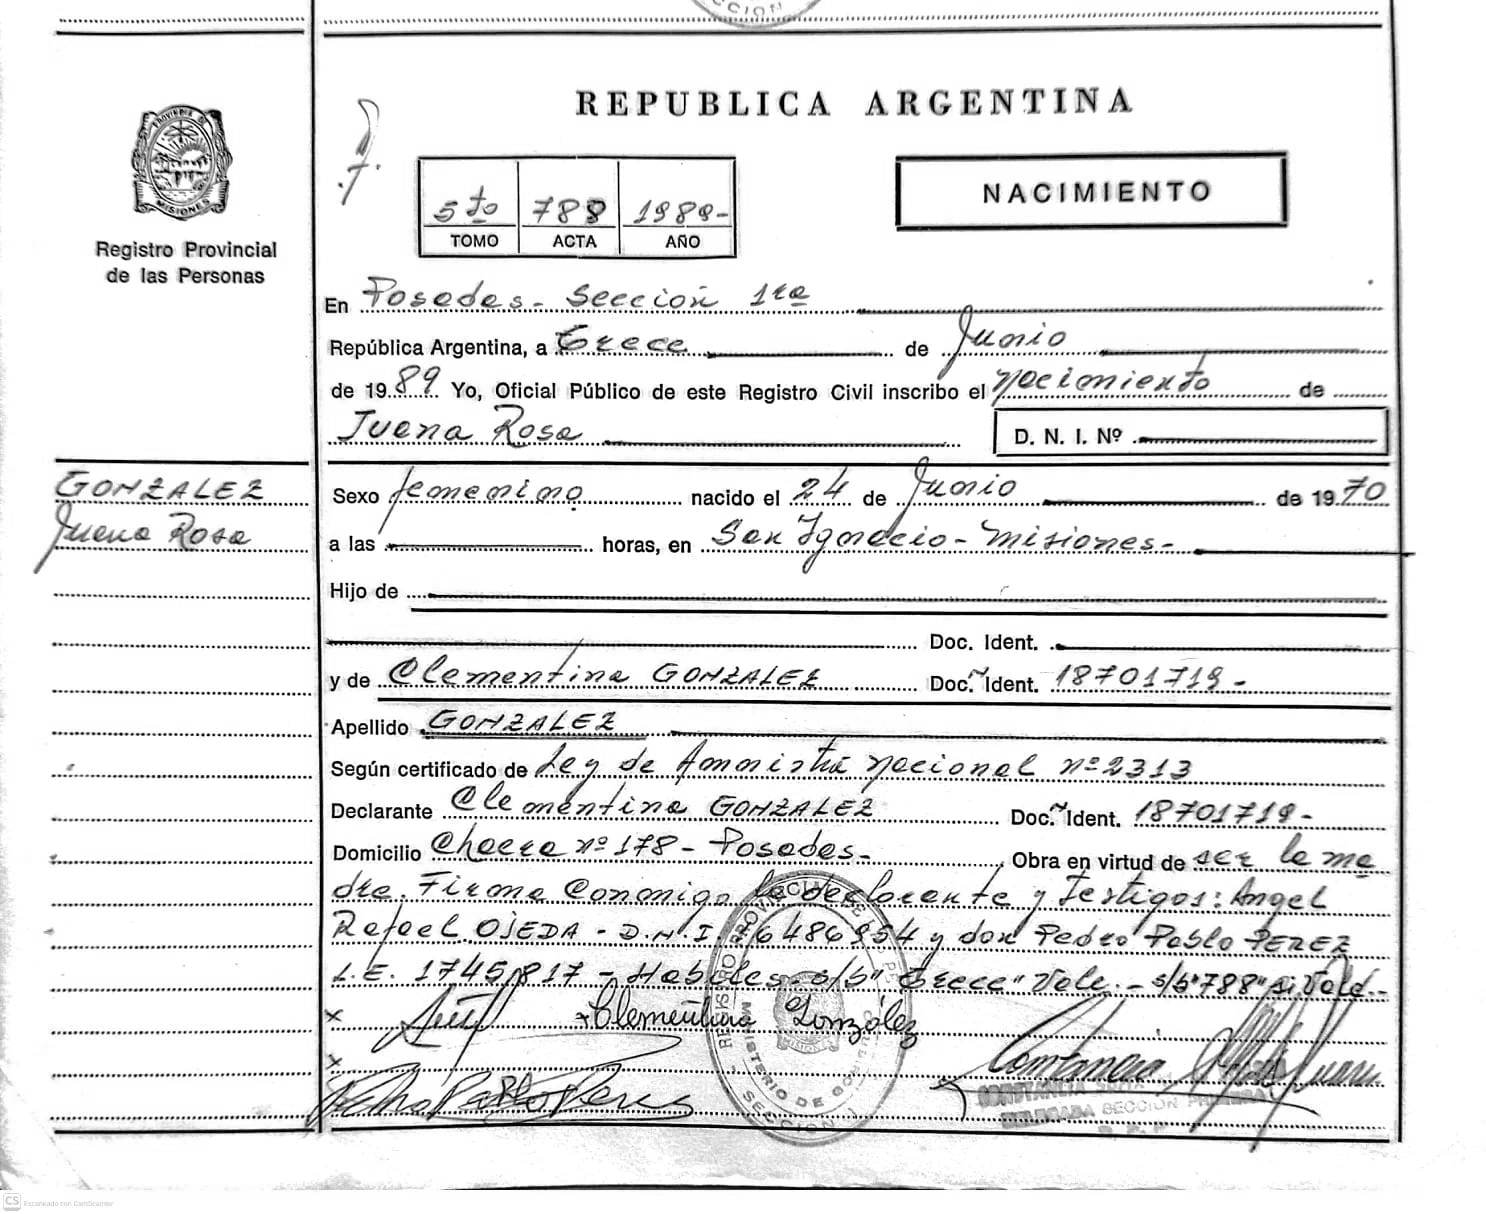 CCION
REPUBLICA ARGENTINA
PROVINCIA DE
MISIONES
Registro Provincial
de las Personas
5to 788 1989-
TOMO ACTA AÑO
NACIMIENTO
En Posadas- Sección 1ra
República Argentina, a Trece de Junio
de 1989 Yo, Oficial Público de este Registro Civil inscribo el nacimiento de
Juana Rosa D. N. I. Nº
GONZALEZ
Juana Rosa
Sexo femenino nacido el 24 de Junio de 1970
a las horas, en San Ignacio - Misiones -
Hijo de
Doc. Ident.
y de Clementina GONZALEZ Doc. Ident. 18701719-
Apellido GONZALEZ
Según certificado de Ley de Amnistía nacional nº 2313
Declarante Clementina GONZALEZ Doc. Ident. 18701719-
Domicilio Chacra nº 178 - Posadas- Obra en virtud de ser la ma
dre. Firma Conmigo la declarante y testigos: Angel
Rafael OJEDA - D.N.I. 26486954 y don Pedro Pablo PEREZ
L.E. 1745817 - Habiles- s/b "Trece" Vale.- s/b "788" si Vale.-
x x Clementina González
x
Pedro Pablo Perez
REGISTRO PROVINCIAL DE
MINISTERIO DE GOBIERNO
SECCION 1
MISIONES
CONSTANCIA
DELEGADA SECCION PRIMERA
CS Escaneado con CamScanner